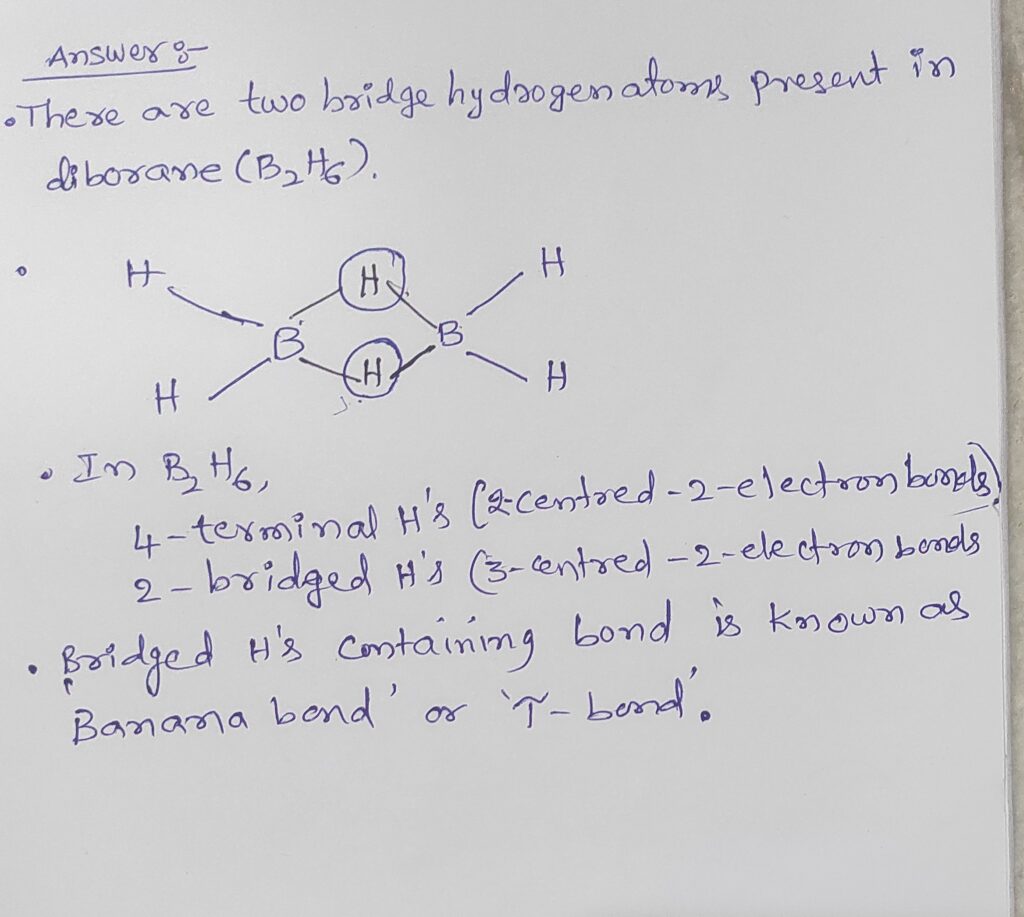 Answer :-
• There are two bridge hydrogen atoms present in
diborane (B₂H₆).
• H H H
B B
H H H
• In B₂H₆,
4-terminal H's (2-centred-2-electron bonds)
2-bridged H's (3-centred-2-electron bonds
• Bridged H's containing bond is known as
'Banana bond' or 'T-bond'.